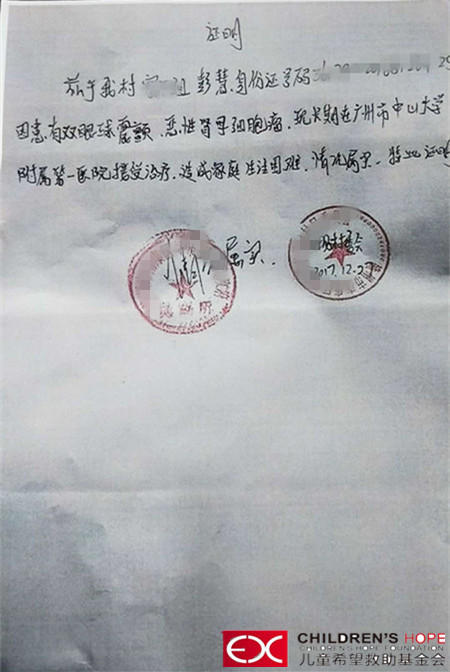 证明
兹于我村 组 彭慧,身份证号码 29
因患有双眼球震颤、恶性肾母细胞瘤,现长期在广州市中山大学
附属第一医院接受治疗,造成家庭生活困难,情况属实,特此证明
属实.
村委会
2017.12.2
EX
CHILDREN'S HOPE
CHILDREN'S HOPE FOUNDATION
儿童希望救助基金会